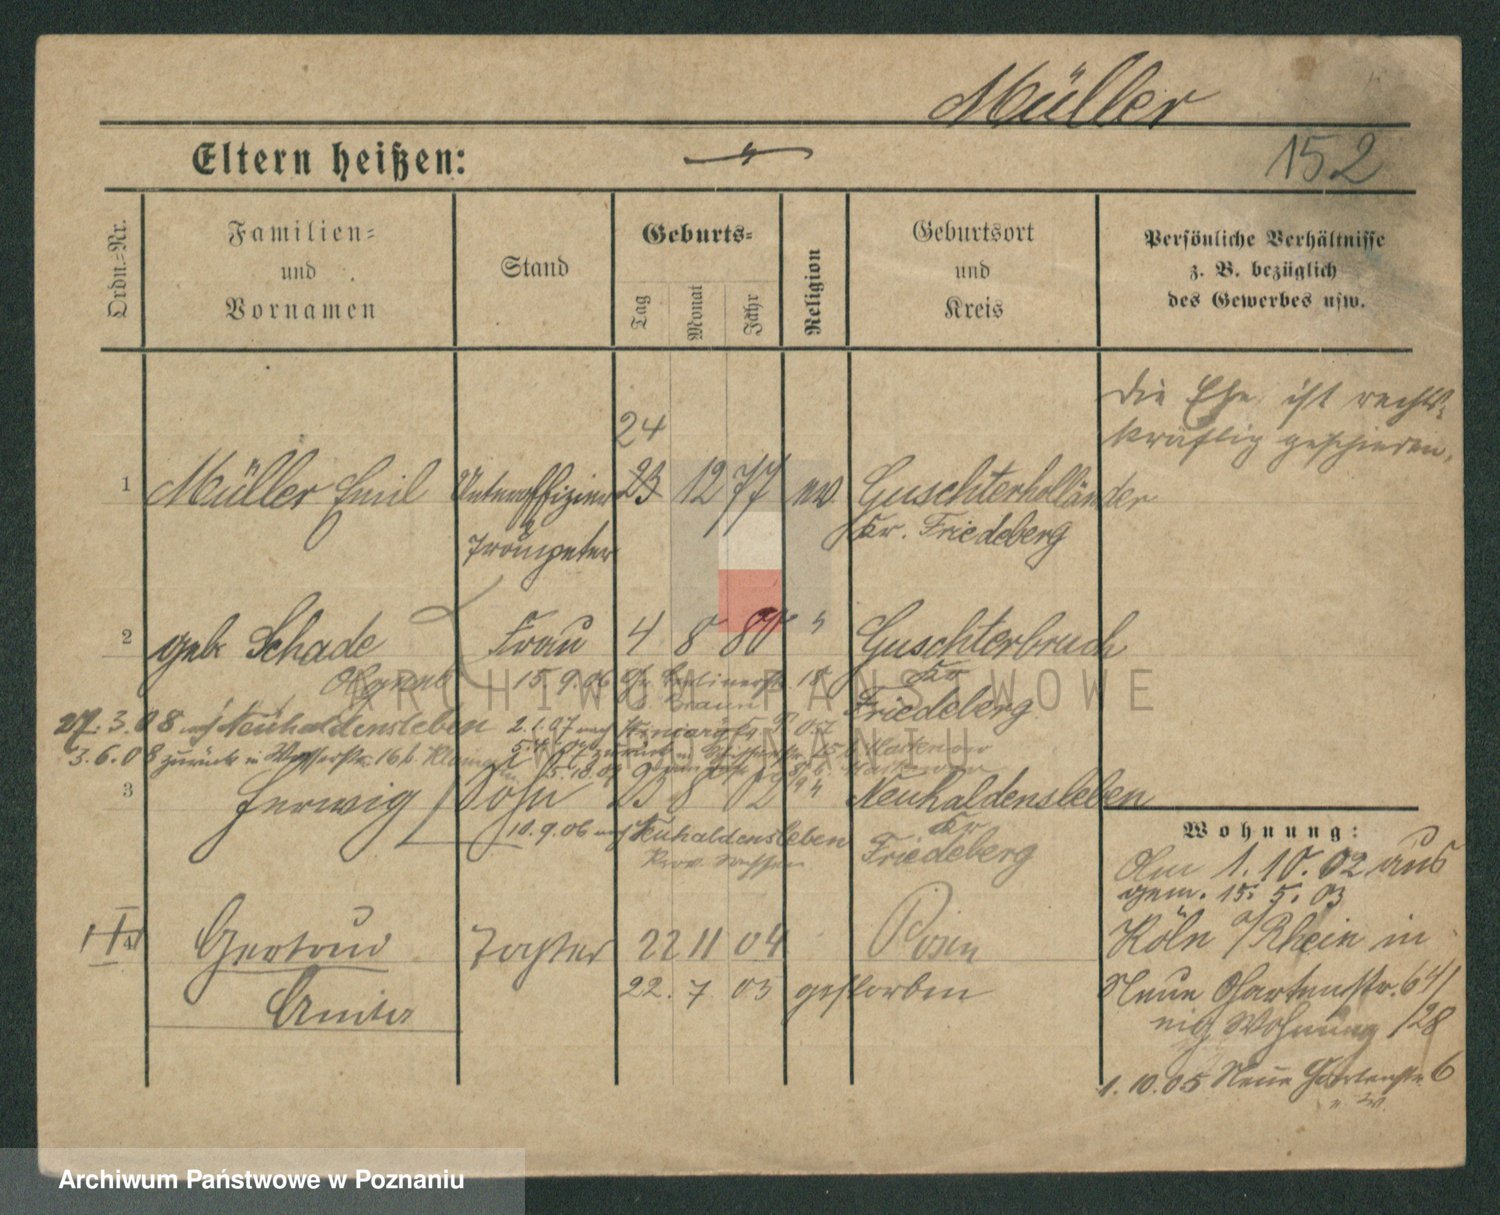 Müller
Eltern heißen: "
152
Ordn.-Nr.
Familien-
und
Vornamen
Stand
Geburts-
Tag
Monat
Jahr
Religion
Geburtsort
und
Kreis
Persönliche Verhältnisse
z. B. bezüglich
des Gewerbes usw.
Die Ehe ist rechts-
kräftig geschieden.
24
1 Müller Emil Unteroffizier 23 12 77 ev Guschterholländer
Trompeter Kr. Friedeberg
2 geb. Schade Frau 4 8 80 " Guschterbruch
15.9.06 18 Kr
Friedeberg
27.3.08 nach Neuhaldensleben 2.1.07 nach
3.6.08 zurück
3 Herwig Sohn 23 8 02 " Neuhaldensleben
10.9.06 nach Neuhaldensleben Kr
Prov. Sachsen Friedeberg
Wohnung:
Am 1.10.02 aus
gem. 15.5.03
Köln a/Rhein in
Neue Gartenstr. 64/
eig Wohnung /28
1.10.05 Neue Gartenstr. 6
4 Gertrud Tochter 22 11 04 Posen
22. 7 05 gestorben
Anita
ARCHIWUM PAŃSTWOWE
W POZNANIU
Archiwum Państwowe w Poznaniu